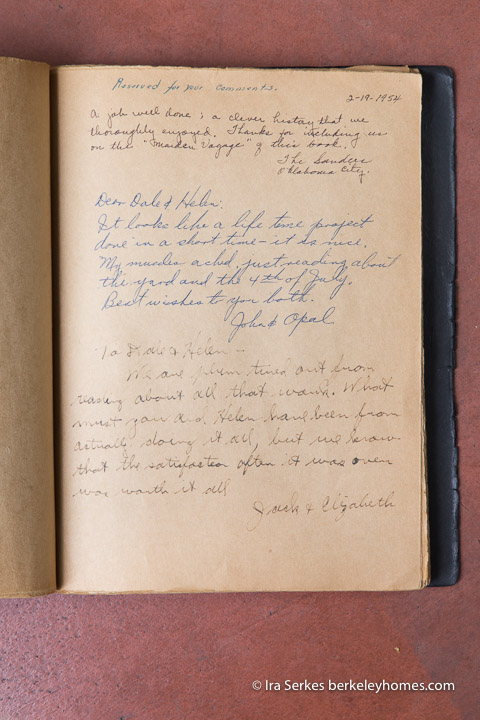 Reserved for your comments.
2-19-1954
A job well done; a clever history that we
thoroughly enjoyed. Thanks for including us
on the "Maiden Vogage" of this book.
The Sanders
Oklahoma City.
Dear Dale & Helen:
It looks like a life time project
done in a short time - it is nice.
My muscles ached just reading about
the yard and the 4th of July.
Best wishes to you both.
John & Opal
To Dale & Helen -
We are plum tired out from
reading about all that work. What
must you and Helen have been from
actually doing it all, but we know
that the satisfaction after it was over
was worth it all
Jack & Elizabeth
© Ira Serkes berkeleyhomes.com